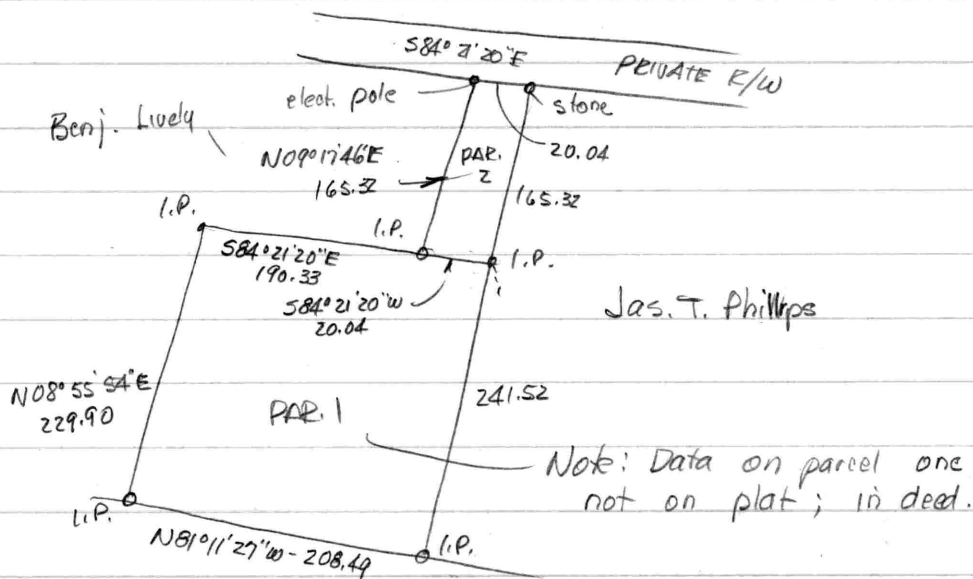 S84° 21' 20" E
PRIVATE R/W
elect. pole
stone
Benj. Lively
N09°17'46"E
165.32
PAR.
2
20.04
165.32
I.P.
I.P.
I.P.
S84°21'20"E
190.33
S84°21'20"W
20.04
Jas. T. Phillips
N08°55'54"E
229.90
241.52
PAR. 1
Note: Data on parcel one
not on plat; in deed.
I.P.
N81°11'27"W - 208.49
I.P.